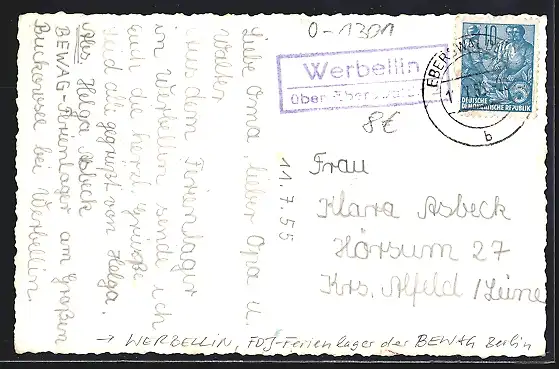 O-1301
Werbellin
über Eberswalde
EBERSWALDE
b
10
DEUTSCHE
DEMOKRATISCHE REPUBLIK
8€
11.7.55
Liebe Oma, lieber Opa u.
Walter
Aus dem Ferienlager
in Werbellin sende ich
euch die herzl. Grüße
Seid alle gegrüßt von Helga.
Abs. Helga Asbeck
BEWAG-Ferienlager am Großen
Buckowsee bei Werbellin.
Frau
Klara Asbeck
Hörsum 27
Krs. Alfeld /Leine
→ WERBELLIN, FDJ-Ferienlager der BEWAG Berlin